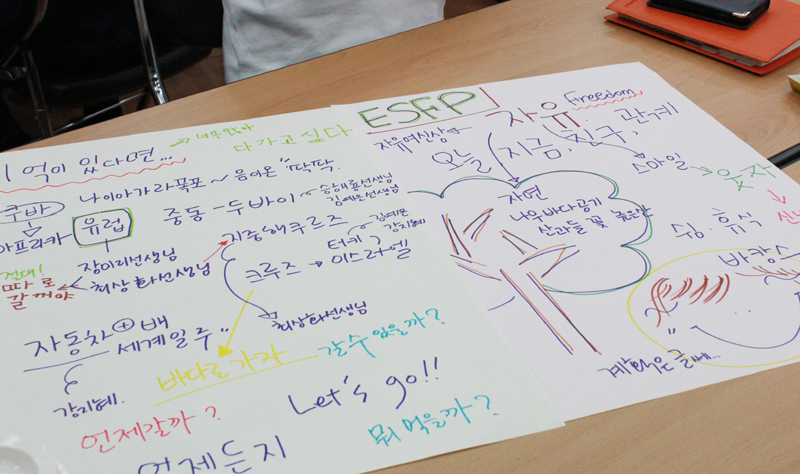 1억이 있다면...
다가고 싶다
나이아가라폭포 ~ 응이온 "딱딱.
쿠바
유럽
중동 - 두바이
승해룡선생님
김예은선생님
아프리카
지중해쿠르즈
김예은
강지혜
절대!
따로
갈꺼야
장미리선생님
최상화선생님
터키?
크루즈 → 이스라엘
최상화선생님
자동차 + 배
세계일주"
강지혜.
바다로가자
갈수있을까?
Let's go!!
언제갈까?
뭐 먹을까?
언제든지
ESFP
자유
Freedom
자유여신상
오늘/지금, 친구, 관계
스마일
웃자
자연
나무바다공기
산과들 꽃
쉼. 휴식
바캉스
계획은 글쎄...